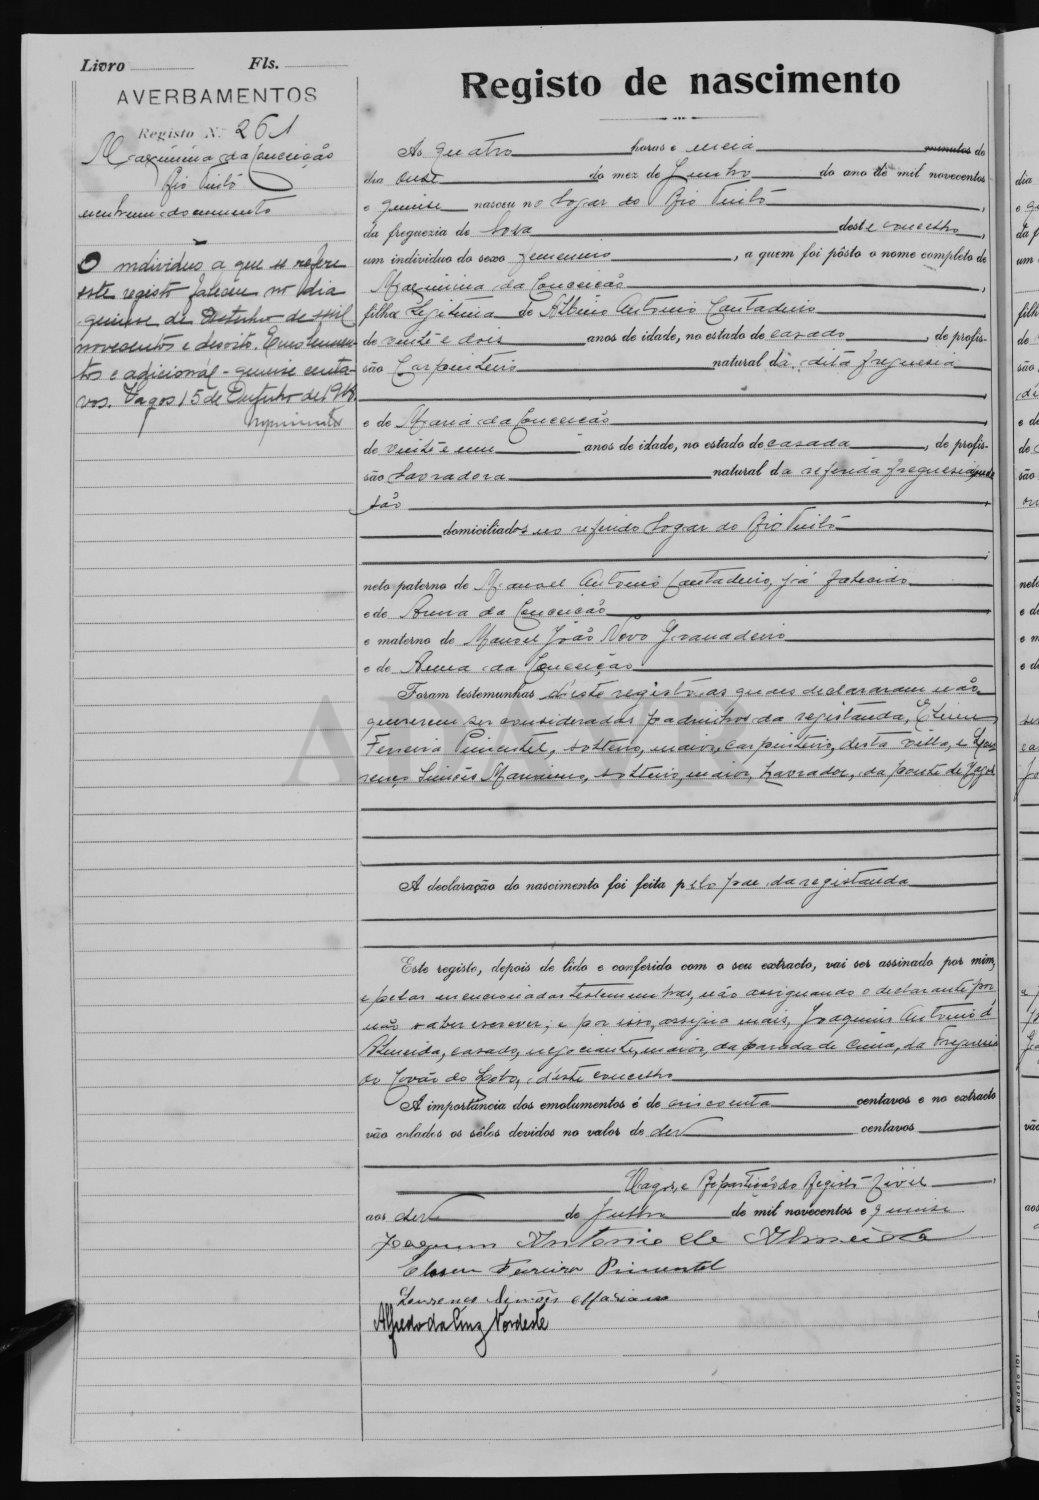 Livro Fls.
AVERBAMENTOS
Registo N.º 261
Maximina da Conceição
Rio Tinto
um documento
O individuo a que se refere
este registo faleceu no dia
quinse de Outubro de mil
novecentos e desoito. Emolumen-
tos e adicional - quinse centa-
vos. Vagos 15 de Outubro de 1918.
Registo de nascimento
Ás quatro horas e meia minutos do
dia onse do mez de Junho do ano de mil novecentos
e quinse nasceu no logar do Rio Tinto,
da freguezia de Soza deste concelho,
um individuo do sexo femenino, a quem foi pôsto o nome completo de
Maximina da Conceição,
filha legitima de Albino Antonio Cantadeiro
de vinte e dois anos de idade, no estado de casado, de profis-
são Carpinteiro natural da dita freguesia
e de Maria da Conceição
de vinte e um anos de idade, no estado de casada, de profis-
são lavradora natural da referida freguesia onde
são
domiciliados no referido logar do Rio Tinto
neto paterno de Manoel Antonio Cantadeiro, já falecido
e de Anna da Conceição
e materno de Manoel João Novo Granadeiro
e de Anna da Conceição
Foram testemunhas d'este registo, as quaes declararam não
quererem ser consideradas padrinhos da registanda,
Ferreira Pimentel, solteiro, maior, carpinteiro, desta villa, e Lou-
renço Simões Mariano, solteiro, maior, lavrador, da ponte de Vagos
A declaração do nascimento foi feita pelo pae da registanda
Este registo, depois de lido e conferido com o seu extracto, vai ser assinado por mim,
e pelas mencionadas testemunhas, não assignando o declarante por
não saber escrever; e por isso, assigna mais, Joaquim Antonio d'
Almeida, casado, negociante, maior, da parada de Cima, da freguesia
do Covão do Lobo, d'este concelho
A importância dos emolumentos é de cincoenta centavos e no extracto
vão colados os sêlos devidos no valor de dez centavos
Vagos, e Repartição do Registo Civil,
aos dez de Julho de mil novecentos e quinse
Joaquim Antonio de Almeida
Ferreira Pimentel
Lourenço Simões Mariano
Alfredo da Cruz Nordeste
APAVR
Modelo 101